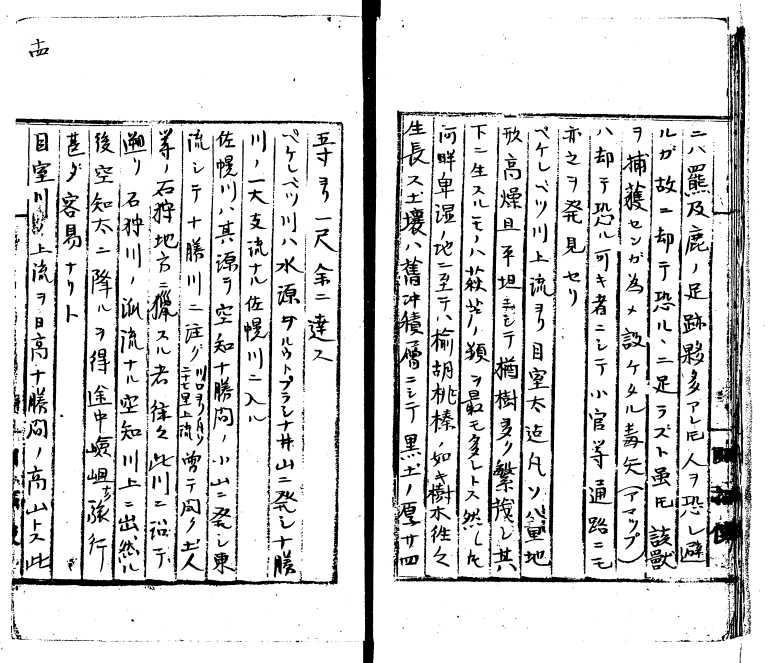 ニハ羆及鹿ノ足跡夥多アレ𪜈人ヲ恐レ避
ルガ故ニ却テ恐ルヽニ足ラズト雖𪜈該獸
ヲ捕獲センガ為メ設ケタル毒矢（アマツプ）
ハ却テ恐ル可キ者ニシテ小官等通路ニモ
亦之ヲ発見セリ
ベケレベツ川上流ヨリ目室太迄凡ソ
地形高燥且平坦ニシテ楢樹多ク繁茂シ其
下ニ生スルモノハ萩苫ノ類ヲ最モ多シトス然レ𪜈
河畔卑湿ノ地ニ至テハ楡胡桃榛ノ如キ樹木往々
生長ス土壤ハ舊冲積層ニシテ黒土ノ厚サ四
五寸ヨリ一尺余ニ達ス
ベケレベツ川ハ水源ヲルウトプラシナ井山ニ発シ十勝
川ノ一大支流ナル佐幌川ニ入ル
佐幌川ハ其源ヲ空知十勝間ノ小山ニ発シ東
流シテ十勝川ニ注グ曽テ聞ク土人
等ノ石狩地方ニ獵スル者往々此川ニ沿テ
遡リ石狩川ノ派流ナル空知川上ニ出然ル
後空知太ニ降ルヲ得途中嶮岨ナク旅行
甚ダ容易ナリト
目室川ノ上流ヲ日高十勝間ノ高山トス此